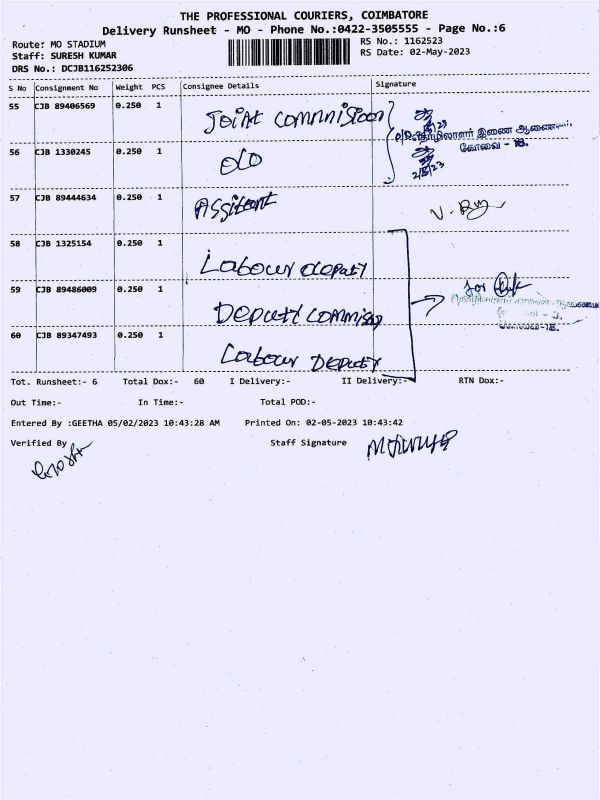 THE PROFESSIONAL COURIERS, COIMBATORE
Delivery Runsheet - MO - Phone No.:0422-3505555 - Page No.:6
Route: MO STADIUM
RS No.: 1162523
Staff: SURESH KUMAR
RS Date: 02-May-2023
DRS No.: DCJB116252306
S No Consignment No Weight PCS Consignee Details Signature
55 CJB 89406569 0.250 1 Joint Commision
இணை
கோவை - 18.
56 CJB 1330245 0.250 1
2/5/23
57 CJB 89444634 0.250 1 Assitent
58 CJB 1325154 0.250 1 Labour deputy
59 CJB 89486009 0.250 1 Deputy Commiss
for
கோவை-18.
60 CJB 89347493 0.250 1 Labour Deputy
Tot. Runsheet:- 6 Total Dox:- 60 I Delivery:- II Delivery:- RTN Dox:-
Out Time:- In Time:- Total POD:-
Entered By :GEETHA 05/02/2023 10:43:28 AM Printed On: 02-05-2023 10:43:42
Verified By Staff Signature